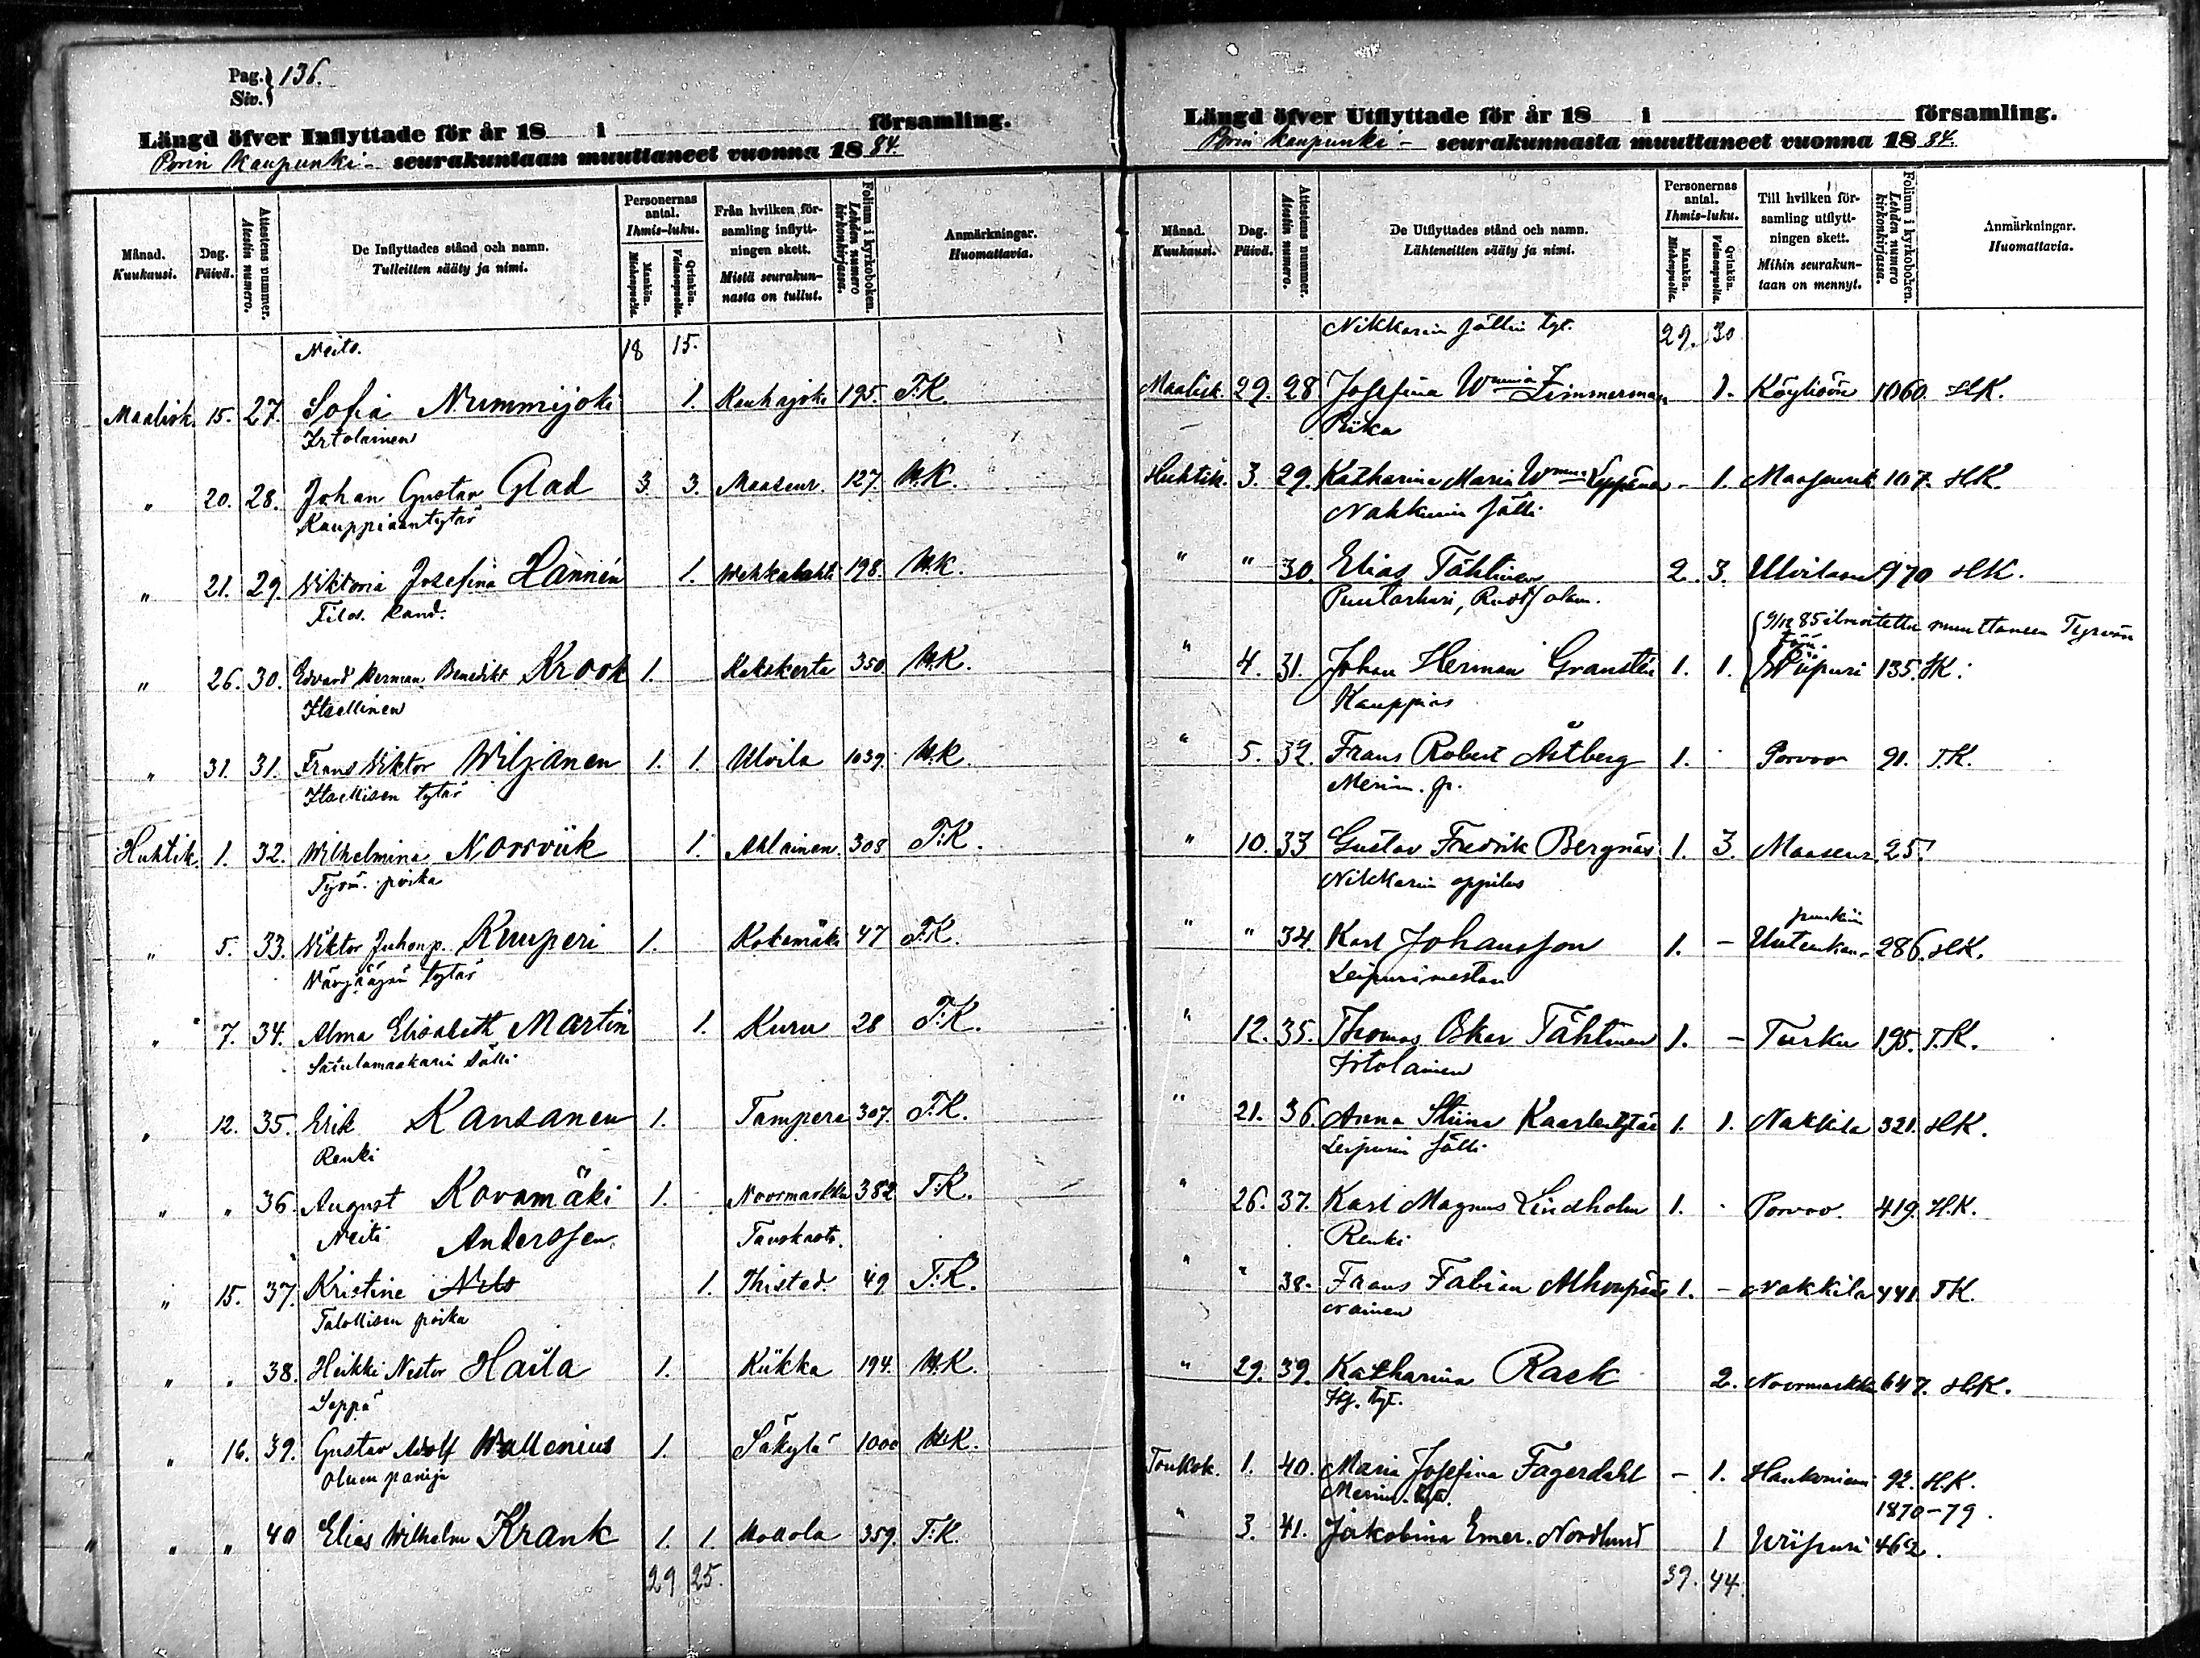 Pag. 136.
Siv.
Längd öfver Inflyttade för år 18 i församling.
Porin Kaupunki - seurakuntaan muuttaneet vuonna 18 84.
Månad. Kuukausi.
Dag. Päivä.
Attestens nummer. Atestin numero.
De Inflyttades stånd och namn. Tulleitten sääty ja nimi.
Personernas antal. Ihmis-luku.
Mankön. Miehenpuolia.
Qvinkön. Vaimonpuolia.
Från hvilken församling inflyttningen skett. Mistä seurakunnasta on tullut.
Folium i kyrkoboken. Lehden numero kirkonkirjassa.
Anmärkningar. Huomattavia.
Neito. 18 15.
Maalisk. 15. 27. Sofia Nummijoki 1. Kauhajoki 195. T.K.
Irtolainen
" 20. 28. Johan Gustav Glad 3. 3. Maaseur. 127. U.K.
Kauppiaantytär
" 21. 29. Viktoria Josefina Hannén 1. Wehkalahti 198. U.K.
Filos. kand.
" 26. 30. Edvard Herman Benedikt Krook 1. Kakskerta 350. U.K.
Itsellinen
" 31. 31. Frans Viktor Wiljanen 1. 1. Ulvila 1039. U.K.
Itsellisen tytär
Huhtik. 1. 32. Wilhelmina Norrvik 1. Ahlainen 308 T:K.
Työm. poika
" 5. 33. Viktor Juhonp. Kuuperi 1. Kokemäki 47 T.K.
tytär
" 7. 34. Alma Elisabeth Martin 1. Kuru 28 T:K.
Satulamaakarin sälli
" 12. 35. Erik Kansanen 1. Tampere 307. T.K.
Renki
" " 36. August Kovamäki 1. Noormarkku 382 T:K.
Neiti Anderssen. Tanskasta.
" 15. 37. Kristine Nils 1. Thistad. 49 T:K.
Talollisen poika
" " 38. Heikki Nestor Haila 1. Kiikka 194. U.K.
Seppä
" 16. 39. Gustav Adolf Wallenius 1. Säkylä 1000 U.K.
oluen panija
" " 40 Elias Wilhelm Krank 1. 1. Hollola 359. T:K.
29 25.
Längd öfver Utflyttade för år 18 i församling.
Porin kaupunki - seurakunnasta muuttaneet vuonna 18 84.
Månad. Kuukausi.
Dag. Päivä.
Attestens nummer. Atestin numero.
De Utflyttades stånd och namn. Lähteneitten sääty ja nimi.
Personernas antal. Ihmis-luku.
Mankön. Miehenpuolia.
Qvinkön. Vaimonpuolia.
Till hvilken församling utflyttningen skett. Mihin seurakuntaan on mennyt.
Folium i kyrkoboken. Lehden numero kirkonkirjassa.
Anmärkningar. Huomattavia.
Nikkarin sällin tyt. 29. 30
Maalisk. 29. 28 Josefina Wmina Zimmerman 1. Köyliöön 1060. H.K.
Piika
Huhtik. 3. 29. Katharina Maria Wmina Leppänen - 1. Maaseurak 107. H.K.
Nahkurin sälli
" " 30. Elias Tähtinen 2. 3. Ulvilaan 970 H.K.
Puutarhuri, alam.
9/12 85 ilmoitettu muuttaneen Tyrvään
" 4. 31. Johan Herman Gransten 1. 1. Wiipuri 135. H.K.
Kauppias
" 5. 32. Frans Robert Åstberg 1. Porvoo 91. T.K.
Merim. p.
" 10. 33 Gustav Fredrik Bergnäs 1. 3. Maaseur. 25.
Nikkarin oppilas
" " 34. Karl Johansson 1. - Uuteenkau- punkiin 286. H.K.
Leipurimestari
" 12. 35. Thomas Oskar Tähtinen 1. - Turku 195. T.K.
Irtolainen
" 21. 36. Anna Stiina Kaarlentytär 1. 1. Nakkila 321. H.K.
Leipurin sälli
" 26. 37. Karl Magnus Lindholm 1. Porvoo. 419. H.K.
Renki
" " 38. Frans Fabian 1. - Nakkila 441. T.K.
vainen
" 29. 39. Katharina Rack 2. Noormarkku 647. H.K.
Its. tyt.
Toukok. 1. 40. Maria Josefina Fagerdahl - 1. Hankoniemi 92. H.K.
Merim. tyt. 1870-79.
" 3. 41. Jakobina Emer. Nordlund 1 Wiipuri 462.
39. 44.